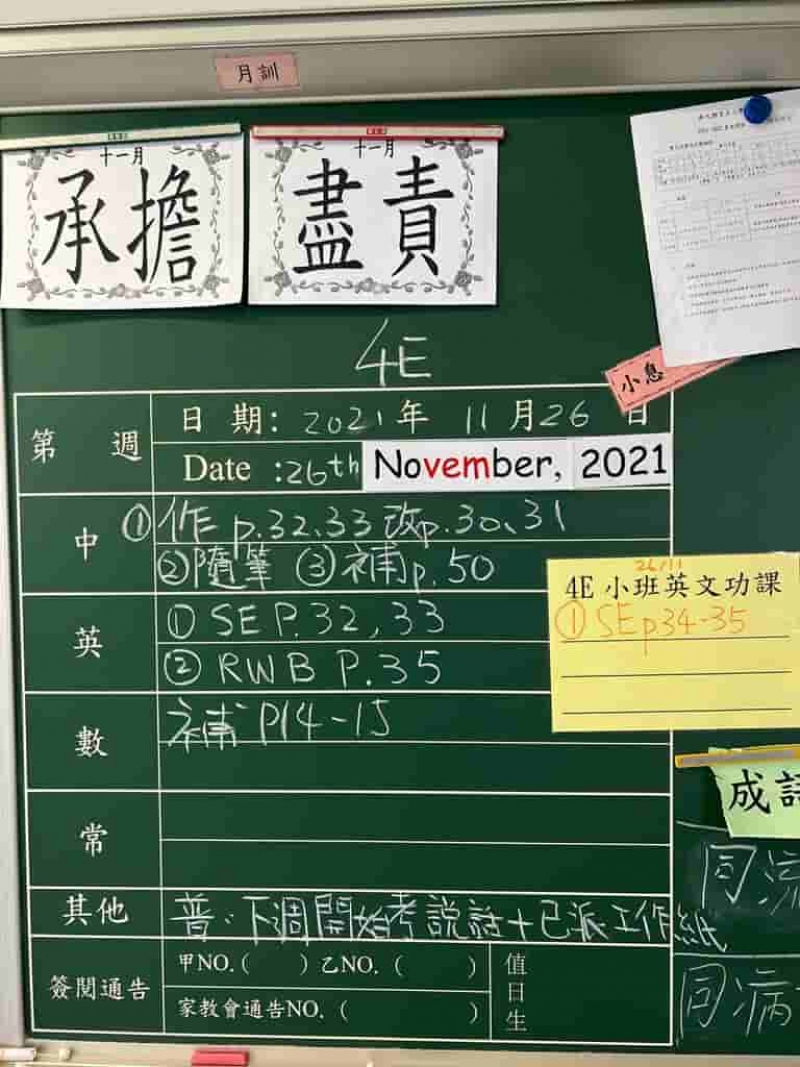 月訓
十一月
承擔
十一月
盡責
小息
4E
第 週
日 期: 2021 年 11 月 26 日
Date :26th November, 2021
中
① 作 p.32、33 改p.30、31
② 隨筆 ③ 補p.50
英
① SE P.32,33
② RWB P.35
26/11
4E 小班英文功課
① SE p34-35
數
補 P14-15
常
成語
同流
同病
其他
普:下周開始考説話+已派工作紙
簽閱通告
甲NO.( ) 乙NO. ( )
家教會通告NO. ( )
值日生